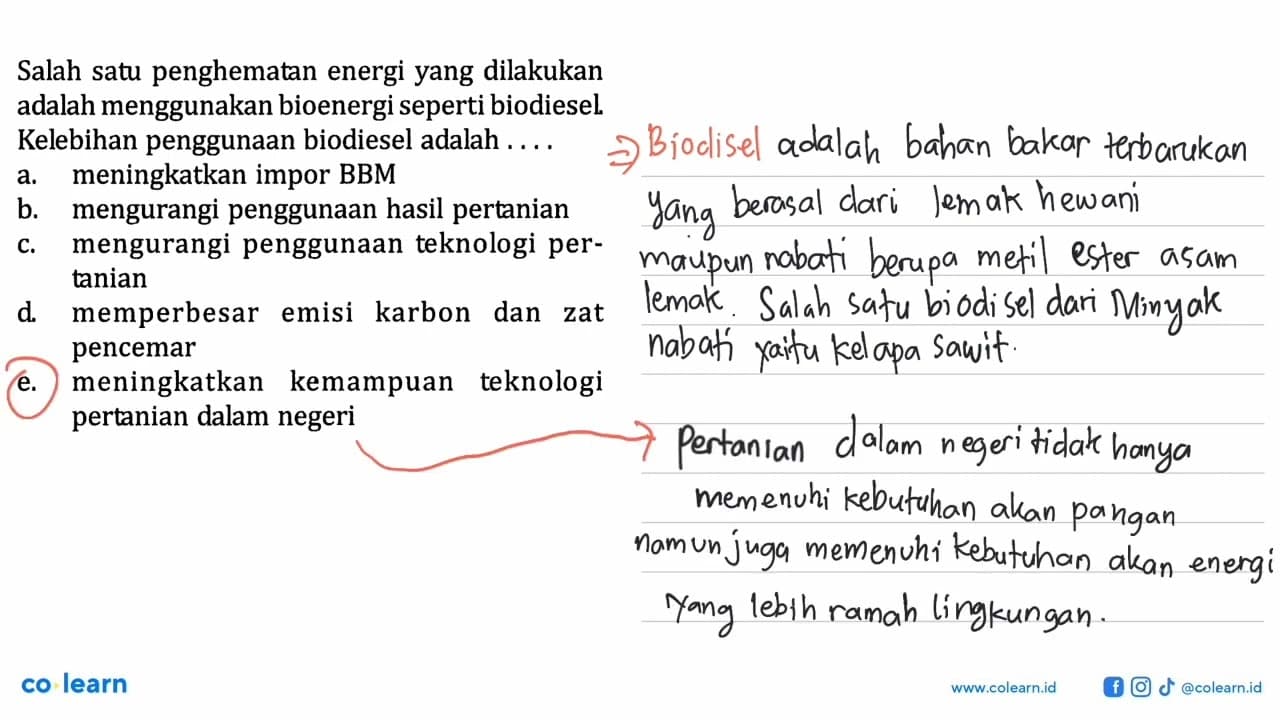 Salah satu penghematan energi yang dilakukan
adalah menggunakan bioenergi seperti biodiesel.
Kelebihan penggunaan biodiesel adalah . . . .
a. meningkatkan impor BBM
b. mengurangi penggunaan hasil pertanian
c. mengurangi penggunaan teknologi per-
tanian
d. memperbesar emisi karbon dan zat
pencemar
e. meningkatkan kemampuan teknologi
pertanian dalam negeri
⇒ Biodisel adalah bahan bakar terbarukan
yang berasal dari lemak hewani
maupun nabati berupa metil ester asam
lemak. Salah satu biodisel dari Minyak
nabati yaitu kelapa sawit.
Pertanian dalam negeri tidak hanya
memenuhi kebutuhan akan pangan
namun juga memenuhi kebutuhan akan energi
yang lebih ramah lingkungan.
co learn
www.colearn.id
@colearn.id